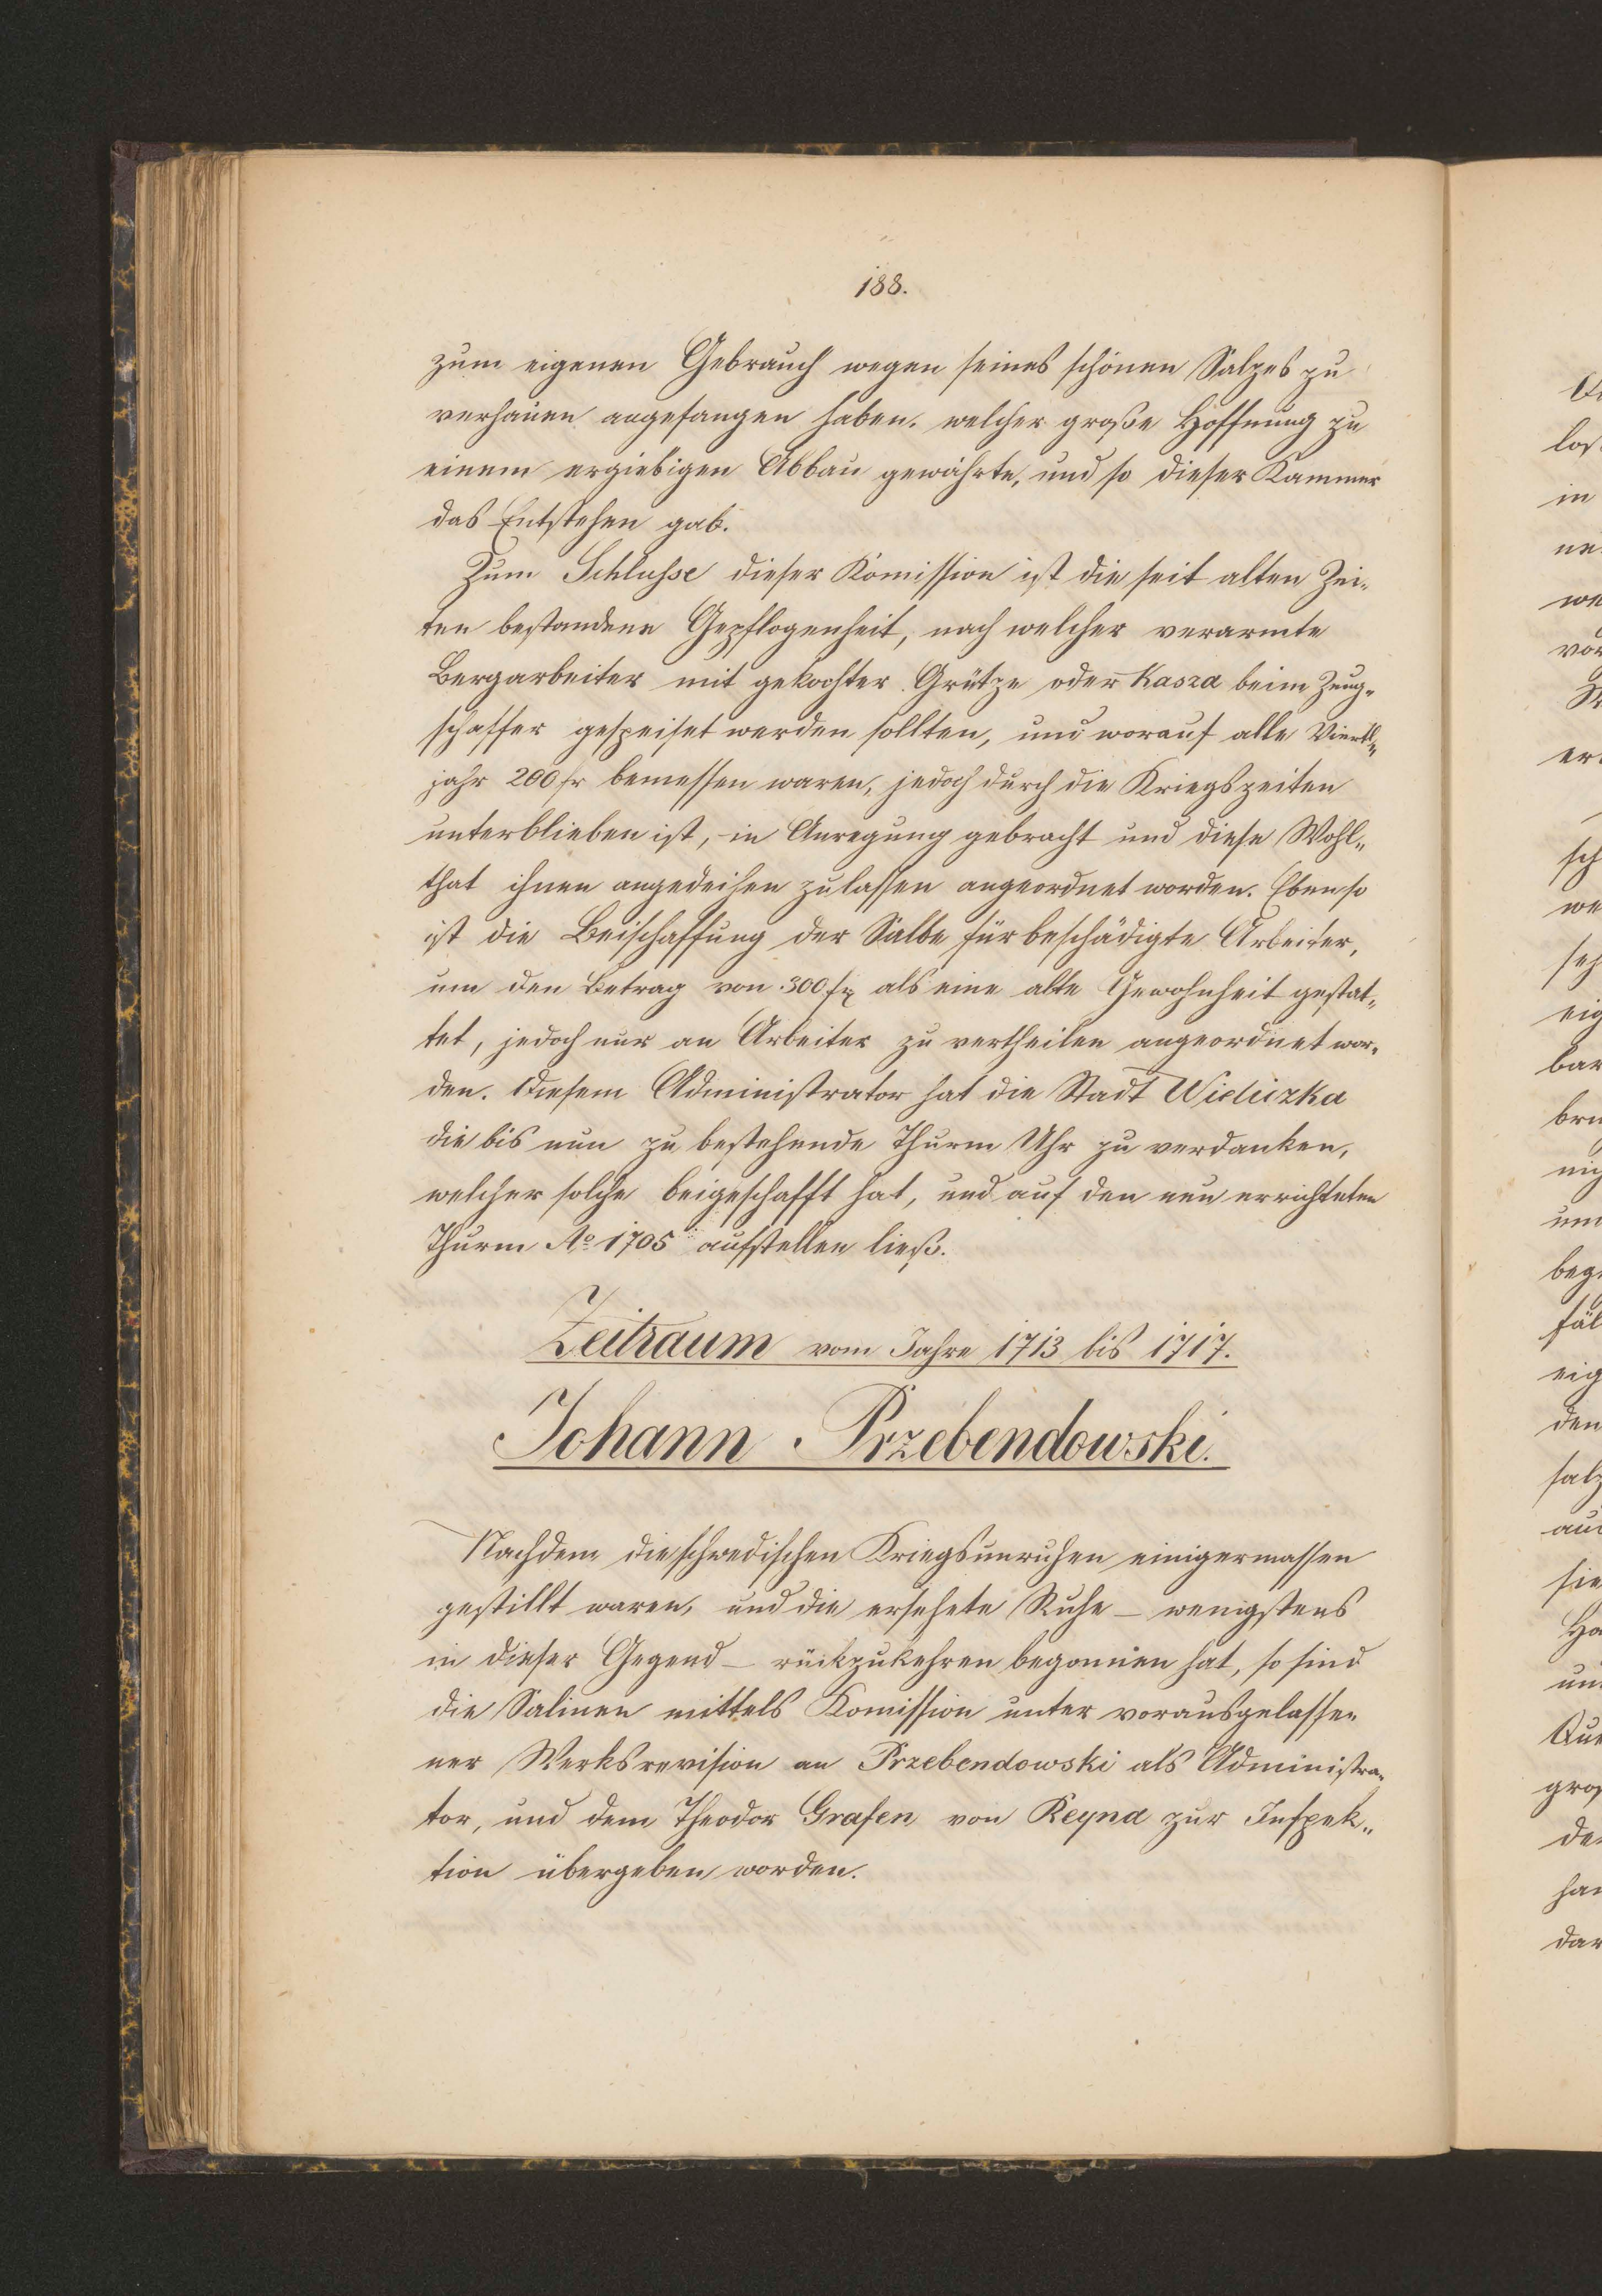 188.
zum eigenen Gebrauch wegen seines schönen Salzes zu
verhauen angefangen haben. welcher große Hoffnung zu
einem ergiebigen Abbau gewährte, und so dieser Kammer
das Entstehen gab.
Zum Schluße dieser Komission ist die seit alten Zei-
ten bestandene Gepflogenheit, nach welcher verarmte
Bergarbeiter mit gekochter Grütze oder Kasza beim Zeug-
schaffer gespeiset werden sollten, und worauf alle Viertl-
jahr 200 fr bemessen waren, jedoch durch die Kriegszeiten
unterblieben ist, in Anregung gebracht und diese Wohl-
that ihnen angedeihen zu lassen angeordnet worden. Ebenso
ist die Beischaffung der Salbe für beschädigte Arbeiter,
um den Betrag von 300 fr als eine alte Gewohnheit gestat-
tet, jedoch nur an Arbeiter zu vertheilen angeordnet wor-
den. Diesem Administrator hat die Stadt Wieliczka
die bis nun zu bestehende Thurm Uhr zu verdanken,
welcher solche beigeschafft hat, und auf den neu errichteten
Thurm Ao 1705 aufstellen ließ.
Zeitraum vom Jahre 1713 bis 1717.
Johann Przebendowski.
Nachdem die schwedischen Kriegsunruhen einigermassen
gestillt waren, und die ersehete Ruhe – wenigstens
in dieser Gegend – rückzukehren begonnen hat, so sind
die Salinen mittels Komission unter vorausgelasse-
ner Werksrevision an Przebendowski als Administra-
tor, und dem Theodor Grafen von Reyna zur Inspek-
tion übergeben worden.